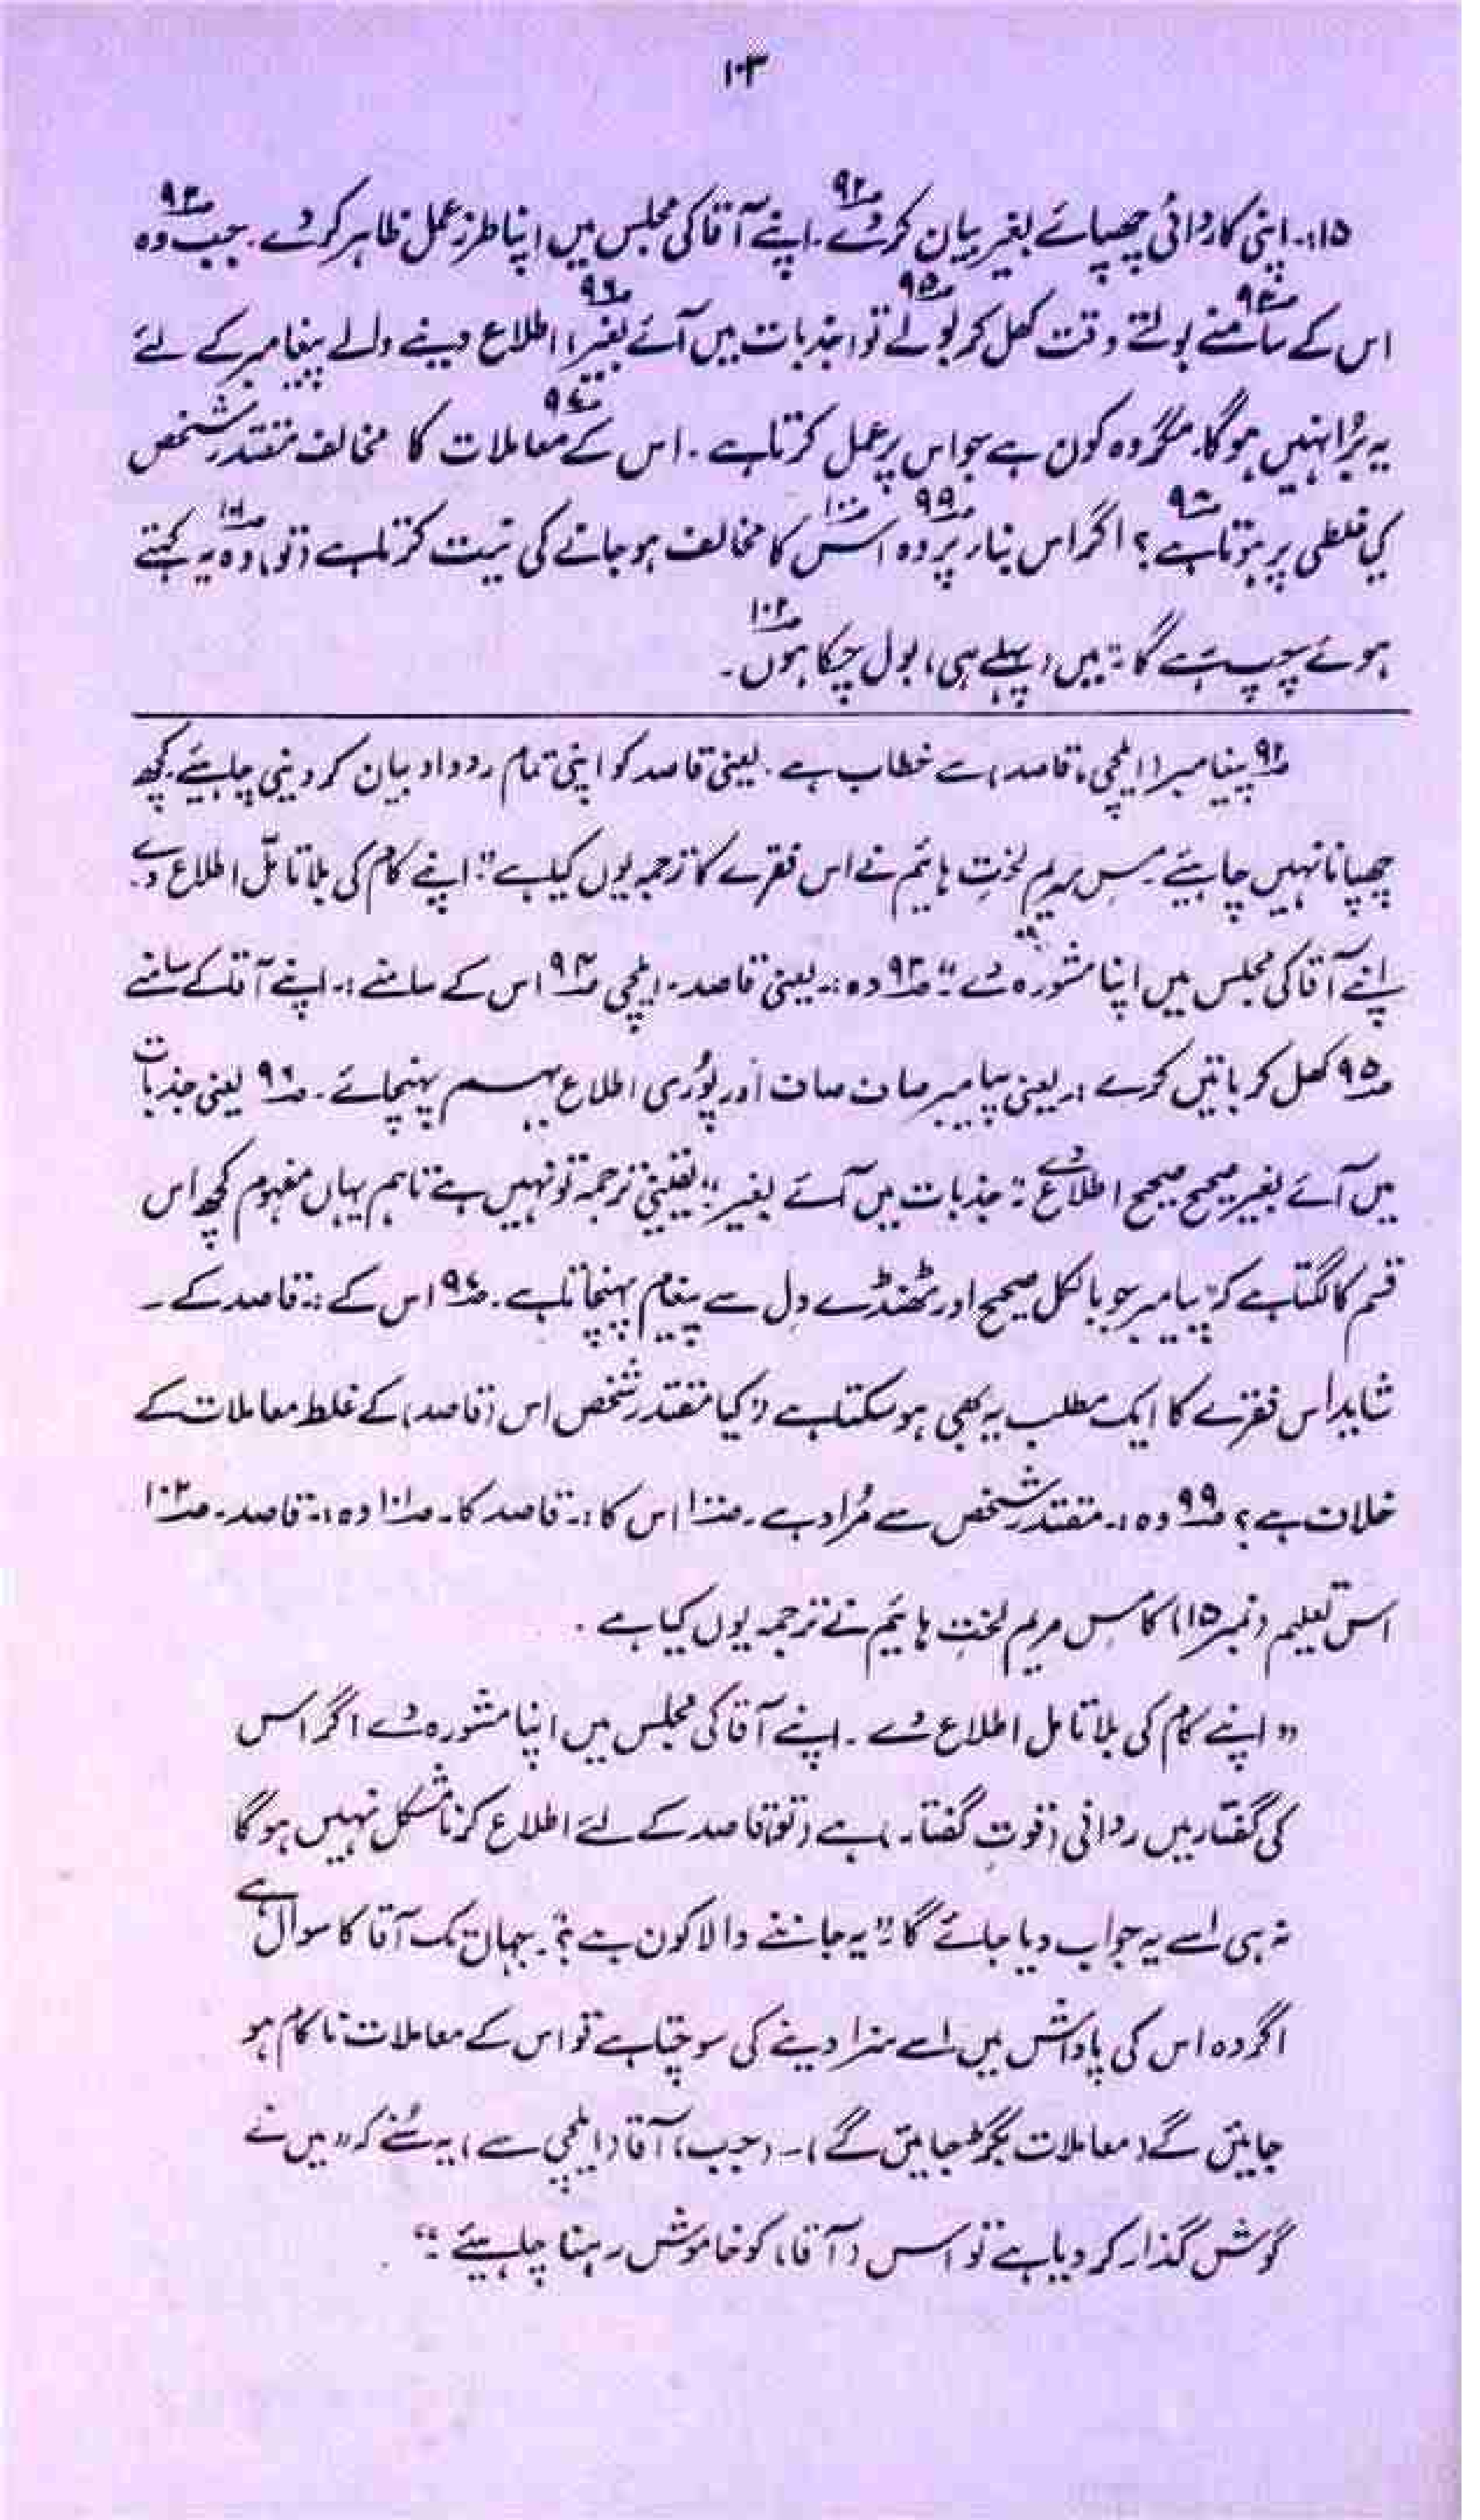 ۱۰۳
۱۵:۔ اپنی کاروائی چھپائے بغیر بیان کر دے ؎۹۲۔ اپنے آقا کی مجلس میں اپنا طرز عمل ظاہر کر دے۔ جب وہ ؎۹۳
اس کے سامنے ؎۹۴ بولتے وقت کھل کر بولے ؎۹۵ تو (جذبات میں آئے بغیر) ؎۹۶ اطلاع دینے والے پیغامبر کے لئے
یہ بُرا نہیں ہوگا۔ مگر وہ کون ہے جو اس پر عمل کرتا ہے۔ اس کے ؎۹۷ معاملات کا مخالف مقتدر شخص
کی غلطی پر ہوتا ہے ؎۹۸ ؟ اگر اس بنا پر وہ ؎۹۹ اس ؎۱۰۰ کا مخالف ہو جانے کی نیت کرتا ہے (تو) وہ ؎۱۰۱ یہ کہتے
ہوئے چپ رہے گا : "میں (پہلے ہی) بول چکا ہوں ؎۱۰۲۔
؎۹۲ پیغامبر (ایلچی، قاصد) سے خطاب ہے۔ یعنی قاصد کو اپنی تمام روداد بیان کر دینی چاہیئے۔ کچھ
چھپانا نہیں چاہیئے۔ مس مریم لخت ہائیم نے اس فقرے کا ترجمہ یوں کیا ہے : "اپنے کام کی بلا تامّل اطلاع دے۔
اپنے آقا کی مجلس میں اپنا مشورہ دے"۔ ؎۹۳ وہ :۔ یعنی قاصد۔ ایلچی ؎۹۴ اس کے سامنے :۔ اپنے آقا کے سامنے
؎۹۵ کھل کر باتیں کرے :۔ یعنی پیامبر صاف صاف اور پُوری اطلاع بہم پہنچائے۔ ؎۹۶ یعنی جذبات
میں آئے بغیر صحیح صحیح اطلاع دے : "جذبات میں آئے بغیر" یقینی ترجمہ تو نہیں ہے تاہم یہاں مفہوم کچھ اس
قسم کا لگتا ہے کہ "پیامبر جو بالکل صحیح اور ٹھنڈے دل سے پیغام پہنچاتا ہے۔ ؎۹۷ اس کے :۔ قاصد کے۔
شاید اس فقرے کا ایک مطلب یہ بھی ہو سکتا ہے "کیا مقتدر شخص اس (قاصد) کے غلط معاملات کے
خلاف ہے؟ ؎۹۹ وہ :۔ مقتدر شخص سے مُراد ہے۔ ؎۱۰۰ اس کا :۔ قاصد کا۔ ؎۱۰۱ وہ :۔ قاصد۔ ؎۱۰۲
اس تعلیم (نمبر ۱۵) کا مس مریم لخت ہائیم نے ترجمہ یوں کیا ہے۔
"اپنے کام کی بلا تامل اطلاع دے۔ اپنے آقا کی مجلس میں اپنا مشورہ دے اگر اس
کی گفتار میں روانی (قوتِ گفتار) ہے (تو) قاصد کے لئے اطلاع کرنا مشکل نہیں ہوگا
نہ ہی اسے یہ جواب دیا جائے گا : "یہ جاننے والا کون ہے؟"۔ جہاں تک آقا کا سوال ہے
اگر وہ اس کی پاداش میں اسے سزا دینے کی سوچتا ہے تو اس کے معاملات ناکام ہو
جائیں گے (معاملات بگڑ جائیں گے)۔ (جب) آقا (ایلچی سے) یہ سُنے کہ "میں نے
گوش گذار کر دیا ہے تو اس (آقا) کو خاموش رہنا چاہیئے :"